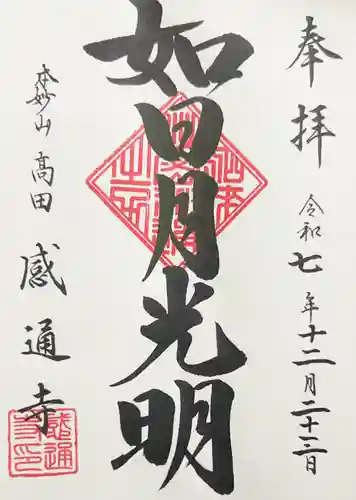 奉拝
令和七年十二月二十三日
如日月光明
本妙山
高田
感通寺